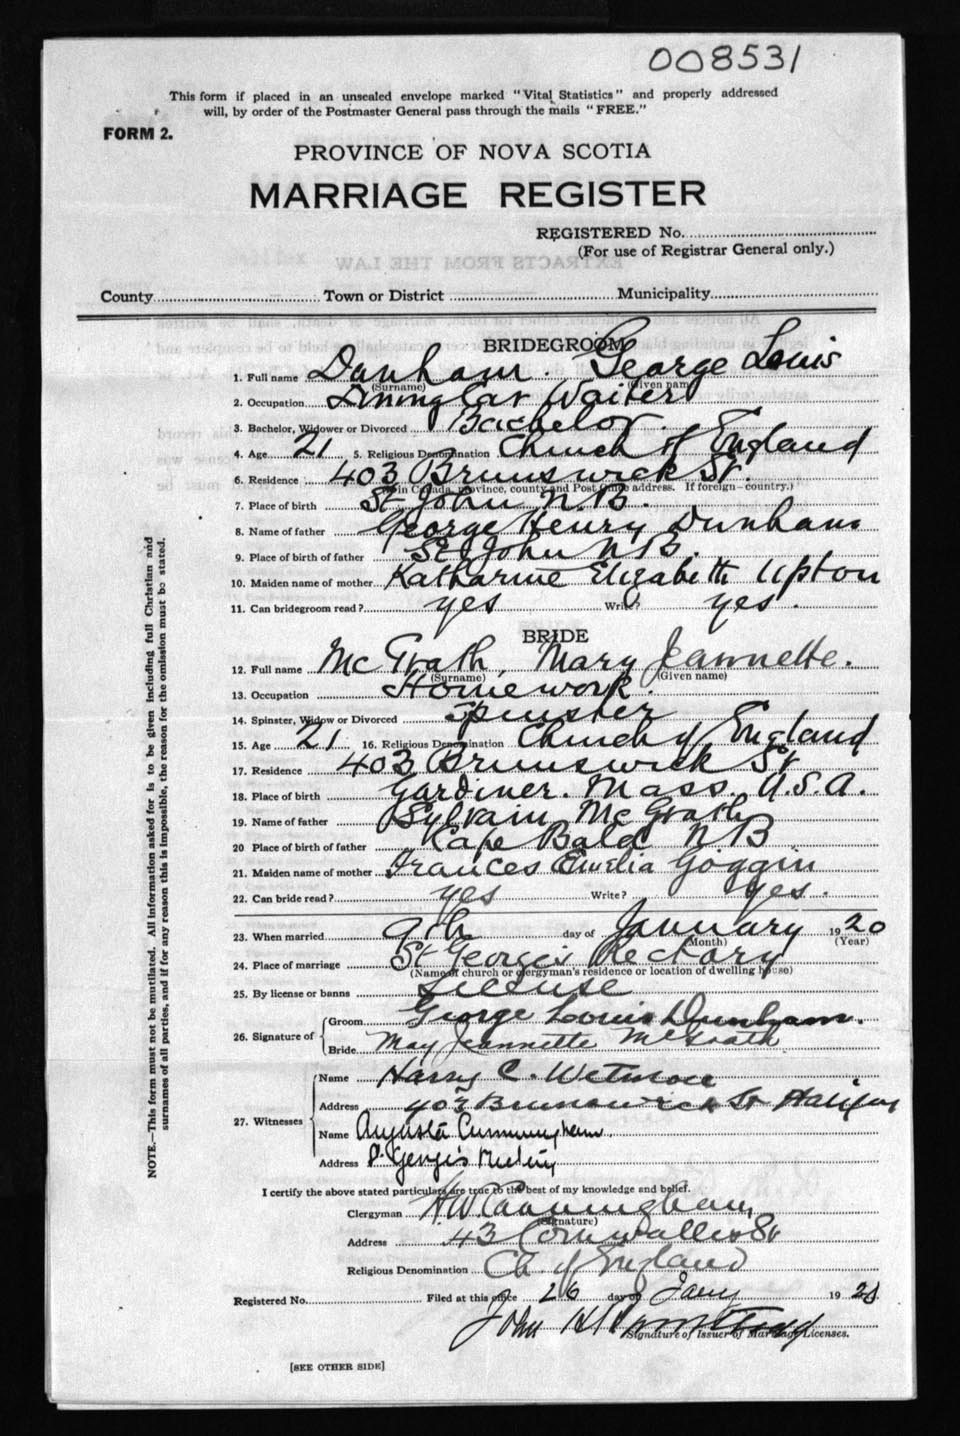 008531
This form if placed in an unsealed envelope marked "Vital Statistics" and properly addressed
will, by order of the Postmaster General pass through the mails "FREE."
FORM 2.
PROVINCE OF NOVA SCOTIA
MARRIAGE REGISTER
REGISTERED No.
(For use of Registrar General only.)
County Town or District Municipality
BRIDEGROOM
1. Full name Dunham. George Louis
(Surname) (Given name)
2. Occupation Dining Car Waiter
3. Bachelor, Widower or Divorced Bachelor.
4. Age 21 5. Religious Denomination Church of England
6. Residence 403 Brunswick St.
(If in Canada, province, county and Post Office address. If foreign—country.)
7. Place of birth St John N.B.
8. Name of father George Henry Dunham
9. Place of birth of father St John N.B.
10. Maiden name of mother Katharine Elizabeth Upton
11. Can bridegroom read? yes Write? yes.
BRIDE
12. Full name McGrath, Mary Jeannette.
(Surname) (Given name)
13. Occupation Home work.
14. Spinster, Widow or Divorced Spinster
15. Age 21. 16. Religious Denomination Church of England
17. Residence 403 Brunswick St
18. Place of birth Gardiner. Mass. U.S.A.
19. Name of father Sylvain McGrath
20 Place of birth of father Cape Bald N B
21. Maiden name of mother Frances Emelia Goggin
22. Can bride read? yes Write? yes.
23. When married 9th day of January 1920
(Month) (Year)
24. Place of marriage St George's Rectory
(Name of church or clergyman's residence or location of dwelling house)
25. By license or banns License
26. Signature of
Groom George Louis Dunham.
Bride May Jeannette McGrath
27. Witnesses
Name Harry C. Wetmore
Address 403 Brunswick St Halifax
Name Augusta Cunningham.
Address St. George's Rectory
I certify the above stated particulars are true to the best of my knowledge and belief.
Clergyman H.W. Cunningham
(Signature)
Address 43 Cornwallis St
Religious Denomination Ch. of England
Registered No. Filed at this office 26 day of Jany 19
John H
Signature of Issuer of Marriage Licenses.
[SEE OTHER SIDE]
NOTE.—This form must not be mutilated. All information asked for is to be given including full Christian and
surnames of all parties, and if for any reason this is impossible, the reason for the omission must be stated.